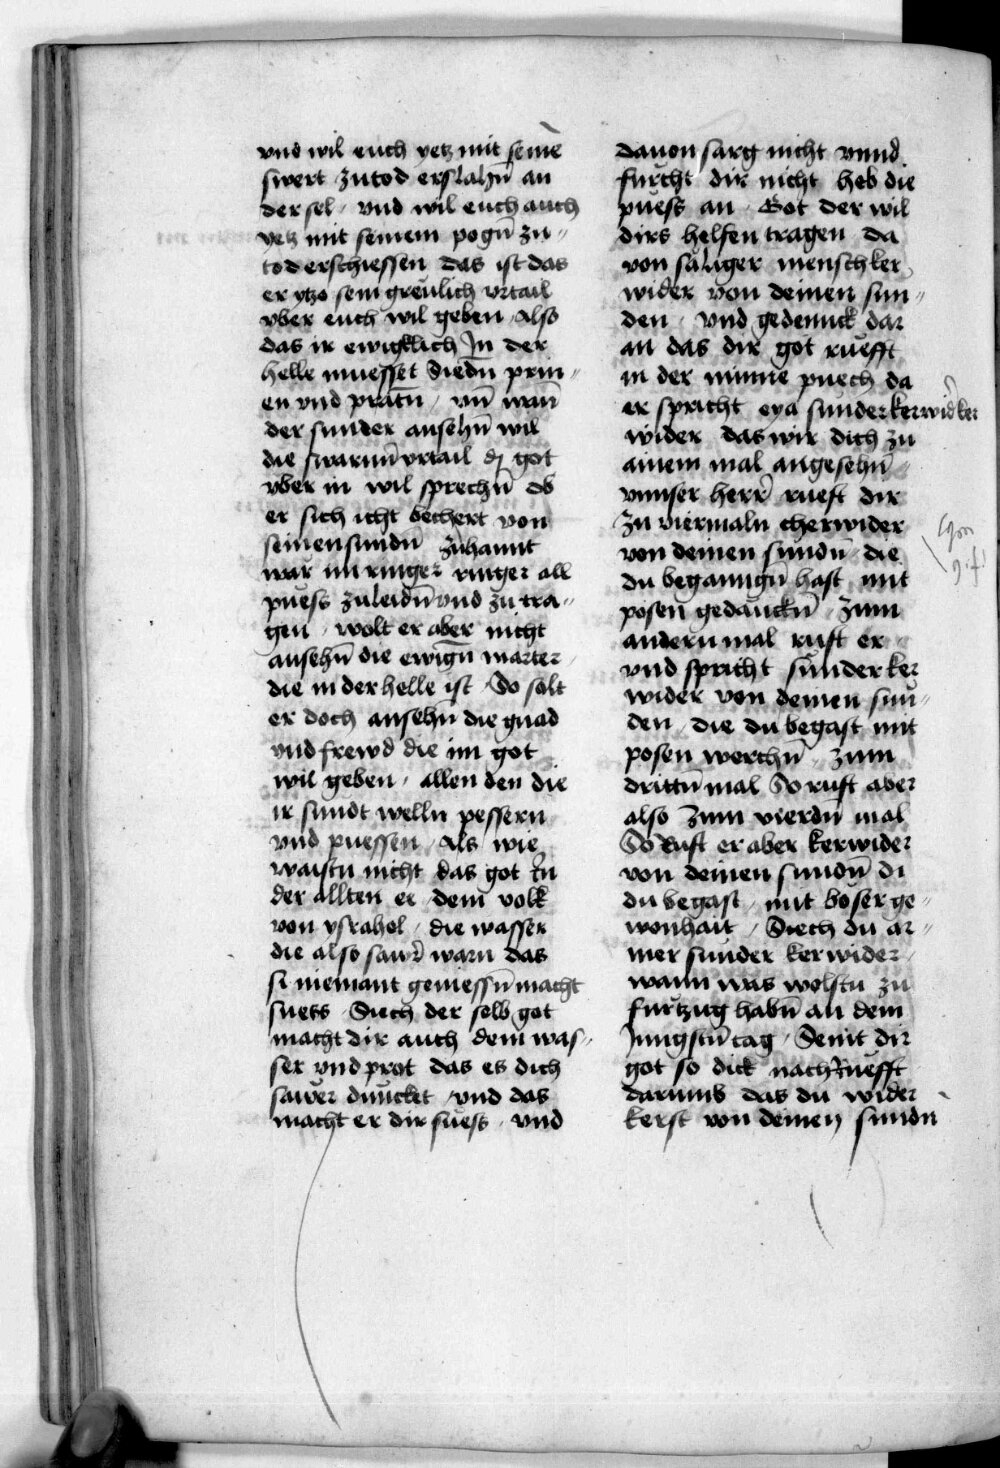 vnd wil euch yetz mit seinē
swert zutod erslahn̄ an
der sel · vnd wil euch auch
yetz mit seinem pogn̄ zu〃
tod erschiessen das ist das
er ytzo sein greulich vrtail
vber euch wil geben · also
das ir ewigklich Jn der
helle muesset Siedn̄ prin〃
en vnd pratn̄ · vn̄ wan̄
der sunder ansehn̄ wil
die swarnn̄ vrtail dz got
vber in wil sprechn̄ ob
er sich icht bechert von
seinen sundn̄ zuhannt
war im ringer ringer all
puess zuleidn̄ vnd zu tra〃
gen · wolt er aber nicht
ansehn̄ die ewign̄ marter
die in der helle ist So solt
er doch ansehn̄ die gnad
vnd frewd die im got
wil geben · allen den die
ir sundt welln pessern
vnd puessen · Als wie
waistu nicht das got in
der allten ee dem volk
von ysrahol · die wasser
die also sawr̄ warn das
si niemant geniessn̄ macht
suess Siech der selb got
macht dir auch dem was〃
ser vnd prot das es dich
sawer duncket · vnd das
macht er dir suess · vnd
dauon sarg nicht vnnd
furcht dir nicht heb die
puess an · Got der wil
dirs helfen tragen da
von säliger mensch ker
wider von deinen sun〃
den · vnd gedennck dar
an das dir got ruefft
in der minne puech da
er spricht eya sunder kerwider ker
wider das wir dich zu
ainem mal angesehn̄
vnnser herr̄ rueft dir
zu viermaln cherwider
von deinen sundn̄ die
du begangn̄ hast mit
posen gedanckn̄ zum
andern mal ruft er
vnd spricht sunder ker
wider von deinen sun〃
den · die du begast mit
posen werchn̄ · zum
drittn̄ mal So ruft aber
also zum vierdn̄ mal
So Ruft er aber kerwider
von deinen sundn̄ di
du begast · mit boser ge〃
wonhait · Siech du ar〃
mer sunder kerwider
wann was wolstu zu
furtzug habn̄ an dem
Jungstn̄ tag · Seint dir
got so dick nach Ruefft
darumb das du wider
kerst von deinen sundn̄